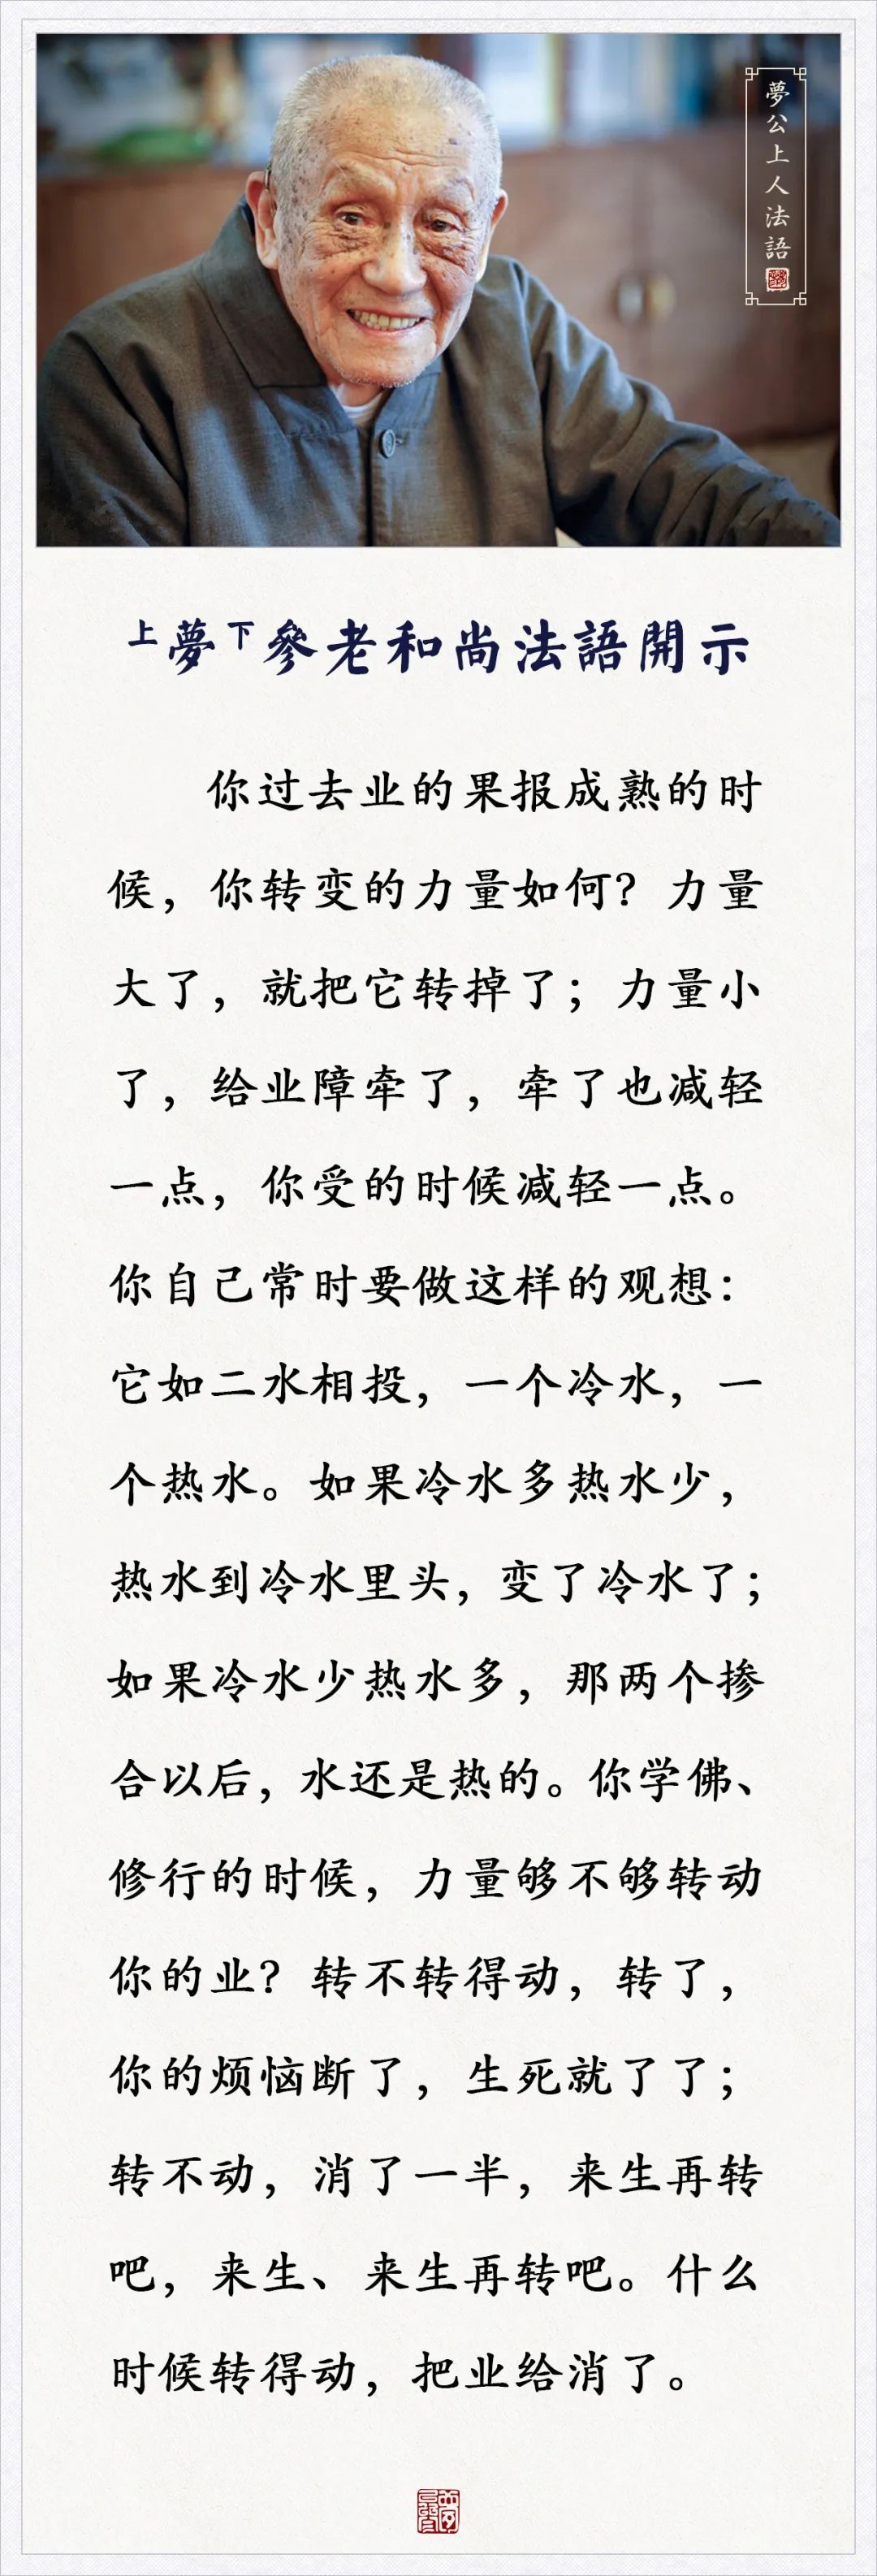 夢公上人法語
上夢下參老和尚法語開示
你过去业的果报成熟的时
候，你转变的力量如何？力量
大了，就把它转掉了；力量小
了，给业障牵了，牵了也减轻
一点，你受的时候减轻一点。
你自己常时要做这样的观想：
它如二水相投，一个冷水，一
个热水。如果冷水多热水少，
热水到冷水里头，变了冷水了；
如果冷水少热水多，那两个掺
合以后，水还是热的。你学佛、
修行的时候，力量够不够转动
你的业？转不转得动，转了，
你的烦恼断了，生死就了了；
转不动，消了一半，来生再转
吧，来生、来生再转吧。什么
时候转得动，把业给消了。